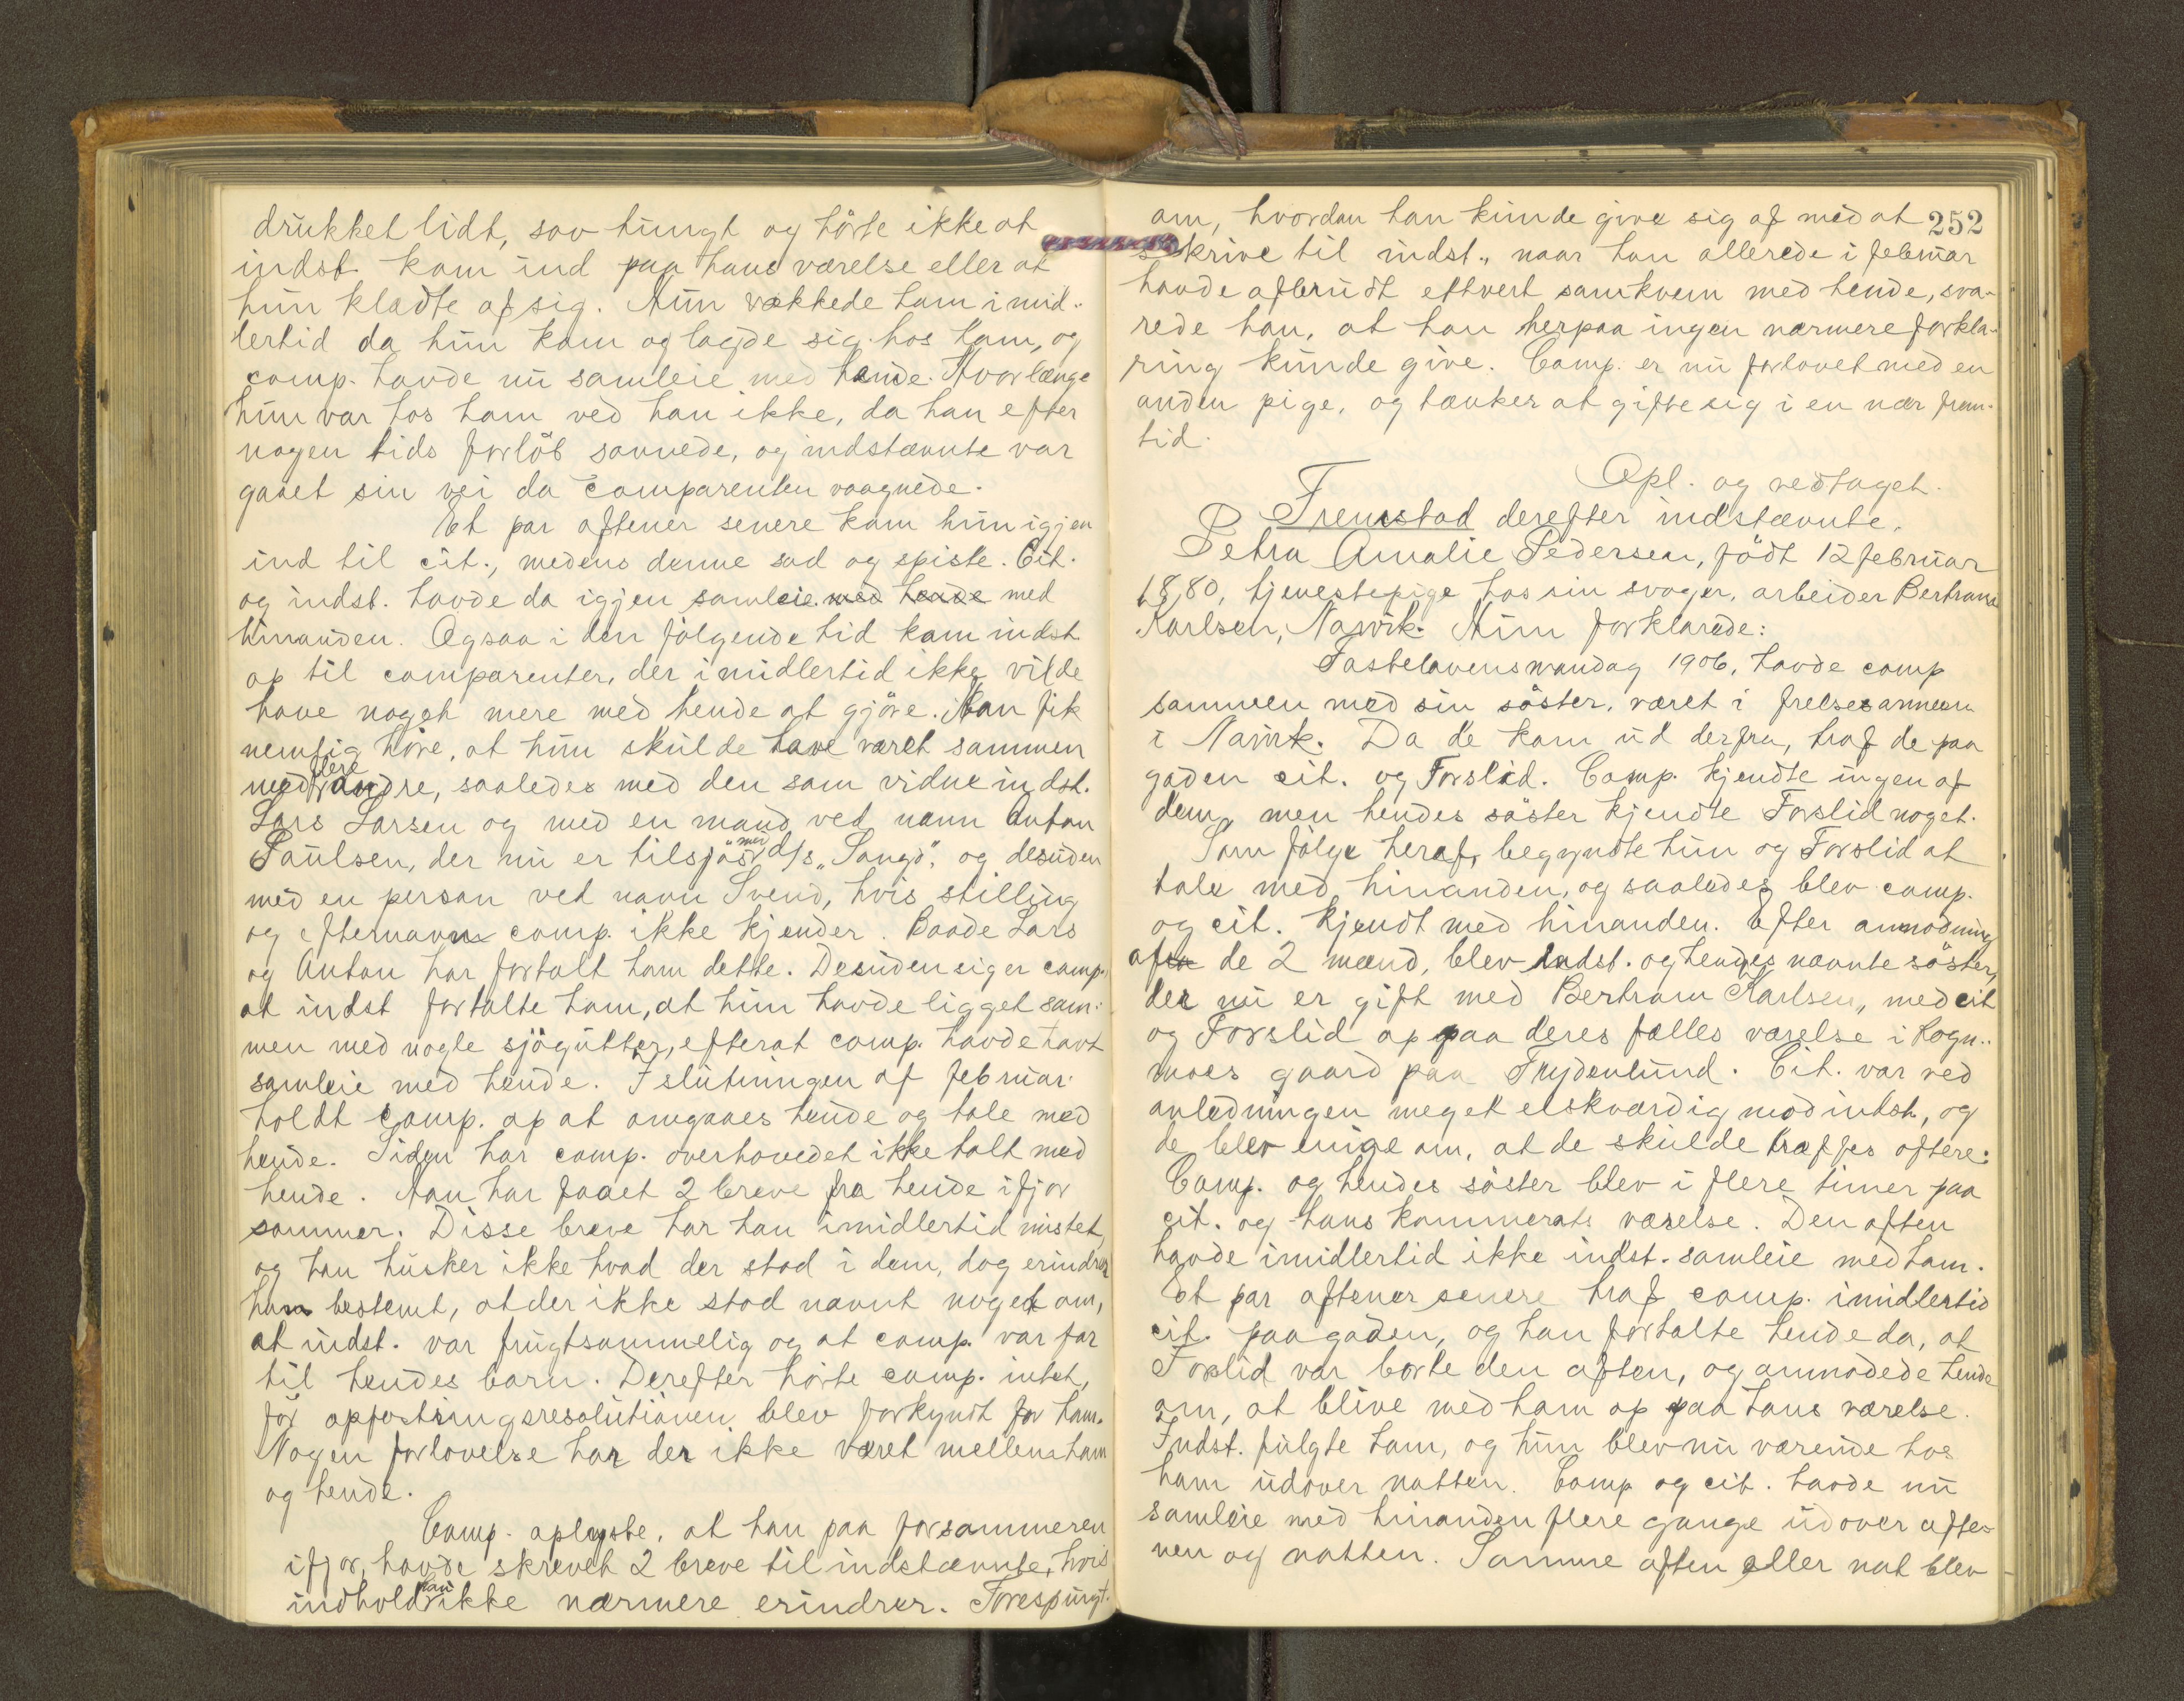 drukket lidt, sov tungt og hörte ikke at
indst. kom ind paa hans værelse eller at
hun klædte af sig. Hun vækkede ham imid-
lertid da hun kom og lagde sig hos ham, og
comp. havde nu samleie med hende. Hvorlænge
hun var hos ham ved han ikke, da han efter
nogen tids forlöb sovnede, og indstævnte var
gaaet sin vei da comparenten vaagnede.
Et par aftener senere kom hun igjen
ind til cit., medens denne sad og spiste. Cit.
og indst. havde da igjen samleie med hende med
hinanden. Ogsaa i den fölgende tid kom indst.
op til comparenten, der imidlertid ikke vilde
have noget mere med hende at gjöre. Han fik
nemlig höre, at hun skulde have været sammen
med flere andre, saaledes med den som vidne indst.
Lars Larsen og med en mand ved navn Anton
Paulsen, der nu er tilsjös med d/s "Sangö", og desuden
med en person ved navn Svend, hvis stilling
og efternavn comp. ikke kjender. Baade Lars
og Anton har fortalt ham dette. Desuden siger comp.
at indst fortalte ham, at hun havde ligget sam-
men med nogle sjögutter, efterat comp. havde havt
samleie med hende. I slutningen af februar
holdt comp. op at omgaaes hende og tale med
hende. Siden har comp. overhovedet ikke talt med
hende. Han har faaet 2 breve fra hende ifjor
sommer. Disse breve har han imidlertid mistet
og han husker ikke hvad der stod i dem, dog erindrer
han bestemt, at der ikke stod nævnt noget om,
at indst. var frugtsommelig og at comp. var far
til hendes barn. Derefter hörte comp. intet,
för opfostringsresolutionen blev forkyndt for ham.
Nogen forlovelse har der ikke været mellem ham
og hende.
Comp. oplyste, at han paa forsommeren
ifjor, havde skrevet 2 breve til indstævnte, hvis
indhold han ikke nærmere erindrer. Forespurgt
252
om, hvordan han kunde give sig af med at
skrive til indst., naar han allerede i februar
havde afbrudt ethvert samkvem med hende, sva-
rede han, at han herpaa ingen nærmere forkla-
ring kunde give. Comp. er nu forlovet med en
anden pige, og tænker at gifte sig i en nær frem-
tid.
Opl. og vedtaget.
Fremstod derefter indstævnte.
Petra Amalie Pedersen, född 12 februar
1880, tjenestepige hos sin svoger, arbeider Bertram
Karlsen, Narvik. Hun forklarede:
Fastelavensmandag 1906, havde comp
sammen med sin söster, været i frelsesarmeen
i Narvik. Da de kom ud derfra, traf de paa
gaden cit. og Forslid. Comp. kjendte ingen af
dem, men hendes söster kjendte Forslid noget.
Som fölge heraf, begyndte hun og Forslid at
tale med hinanden, og saaledes blev comp.
og cit. kjendt med hinanden. Efter anmodning
af de 2 mænd, blev indst. og hendes nævnte söster,
der nu er gift med Bertram Karlsen, med cit
og Forslid op paa deres fælles værelse i Rogn-
moes gaard paa Frydenlund. Cit. var ved
anledningen meget elskværdig mod indst., og
de blev enige om, at de skulde træffes oftere.
Comp. og hendes söster blev i flere timer paa
cit. og hans kammerats værelse. Den aften
havde imidlertid ikke indst. samleie med ham.
Et par aftener senere traf comp. imidlertid
cit. paa gaden, og han fortalte hende da, at
Forslid var borte den aften, og anmodede hende
om, at blive med ham op paa hans værelse.
Indst. fulgte ham, og hun blev nu værende hos
ham udover natten. Comp og cit. havde nu
samleie med hinanden flere gange udover afte-
nen og natten. Samme aften eller nat blev